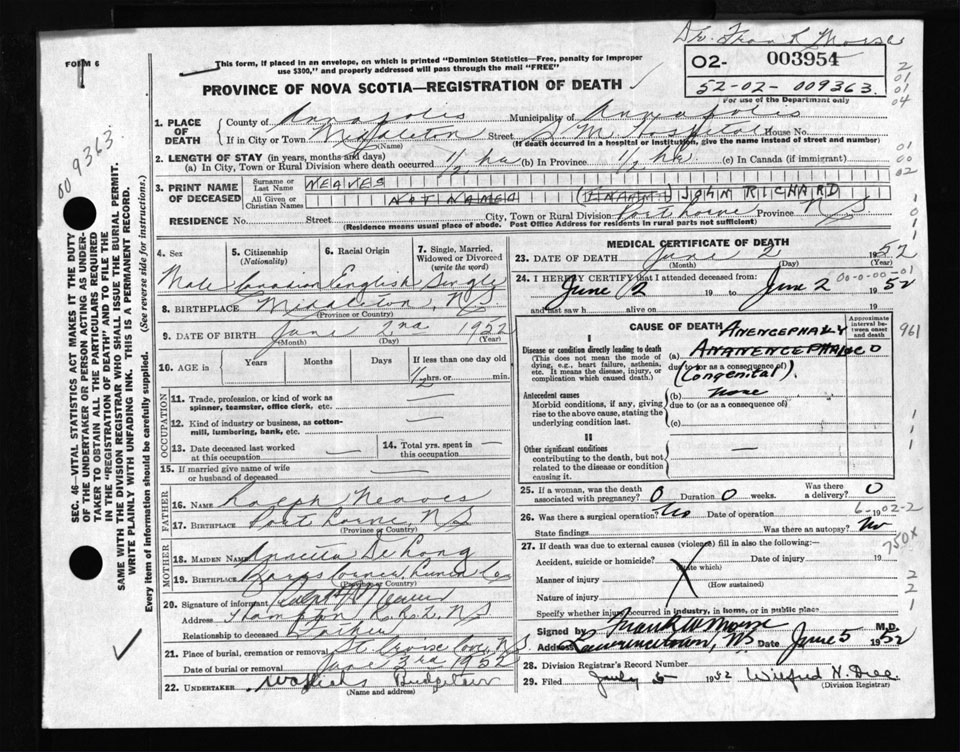 Dr. Frank Morse
FORM 6
This form, if placed in an envelope, on which is printed "Dominion Statistics—Free, penalty for improper
use $300," and properly addressed will pass through the mail "FREE"
02- 003954
52-02- 009363.
For use of the Department only
PROVINCE OF NOVA SCOTIA—REGISTRATION OF DEATH
1. PLACE OF DEATH
County of Annapolis Municipality of Annapolis
If in City or Town Middleton Street S M Hospital House No.
(Name) (If death occurred in a hospital or institution, give the name instead of street and number)
2. LENGTH OF STAY (in years, months and days)
(a) In City, Town or Rural Division where death occurred ½ hr (b) In Province ½ hr. (c) In Canada (if immigrant)
3. PRINT NAME OF DECEASED
Surname or Last Name NEAVES
All Given or Christian Names NOT NAMED (INFANT) JOHN RICHARD
RESIDENCE No. Street City, Town or Rural Division Port Lorne Province N S
(Residence means usual place of abode. Post Office Address for residents in rural parts not sufficient)
4. Sex
Male
5. Citizenship
(Nationality)
Canadian
6. Racial Origin
English
7. Single, Married,
Widowed or Divorced
(write the word)
Single
8. BIRTHPLACE Middleton, N.S.
(Province or Country)
9. DATE OF BIRTH June 2nd 1952
(Month) (Day) (Year)
10. AGE in
Years Months Days If less than one day old
½ hrs. or min.
OCCUPATION
11. Trade, profession, or kind of work as
spinner, teamster, office clerk, etc. —
12. Kind of industry or business, as cotton-
mill, lumbering, bank, etc. —
13. Date deceased last worked
at this occupation —
14. Total yrs. spent in
this occupation —
15. If married give name of wife
or husband of deceased —
FATHER
16. NAME Ralph Neaves
17. BIRTHPLACE Port Lorne N S
(Province or Country)
MOTHER
18. MAIDEN NAME De Long
19. BIRTHPLACE Corner, Lunen Co
(Province or Country)
20. Signature of informant Ralph Neaves
Address Hampton N S
Relationship to deceased Father
21. Place of burial, cremation or removal St. Croix Cove, N.S.
Date of burial or removal June 3rd 1952
22. UNDERTAKER Bridgetown
(Name and address)
MEDICAL CERTIFICATE OF DEATH
23. DATE OF DEATH June 2 1952
(Month) (Day) (Year)
00-0-00-01
24. I HEREBY CERTIFY that I attended deceased from:
June 2 19 to June 2 1952
and last saw h alive on 19
CAUSE OF DEATH
Approximate
interval between onset
and death
I
Disease or condition directly leading to death
(This does not mean the mode of
dying, e.g., heart failure, asthenia,
etc. It means the disease, injury, or
complication which caused death.)
ANENCEPHALY
(a)
due to (or as a consequence of)
(Congenital)
961
Antecedent causes
Morbid conditions, if any, giving
rise to the above cause, stating the
underlying condition last.
(b) none
due to (or as a consequence of)
(c)
II
Other significant conditions
contributing to the death, but not
related to the disease or condition
causing it.
—
25. If a woman, was the death
associated with pregnancy? 0 Duration 0 weeks. Was there
a delivery? 0
26. Was there a surgical operation? No Date of operation 19
6-02-2
State findings Was there an autopsy? No
750X
27. If death was due to external causes (violence) fill in also the following:—
Accident, suicide or homicide? Date of injury 19
(State which)
Manner of injury
(How sustained)
Nature of injury
Specify whether injury occurred in industry, in home, or in public place
Signed by Frank W Morse M.D.
Address Lawrencetown, NS Date June 5 1952
28. Division Registrar's Record Number
29. Filed 1952 Wilfred H.
(Division Registrar)
00 9363
SEC. 46—VITAL STATISTICS ACT MAKES IT THE DUTY
OF THE UNDERTAKER OR PERSON ACTING AS UNDER-
TAKER TO OBTAIN ALL THE PARTICULARS REQUIRED
IN THE "REGISTRATION OF DEATH" AND TO FILE THE
SAME WITH THE DIVISION REGISTRAR WHO SHALL ISSUE THE BURIAL PERMIT.
WRITE PLAINLY WITH UNFADING INK. THIS IS A PERMANENT RECORD.
Every item of information should be carefully supplied. (See reverse side for instructions.)
2
01
01
04
01
00
02
1
0
1
1
1
2
2
1